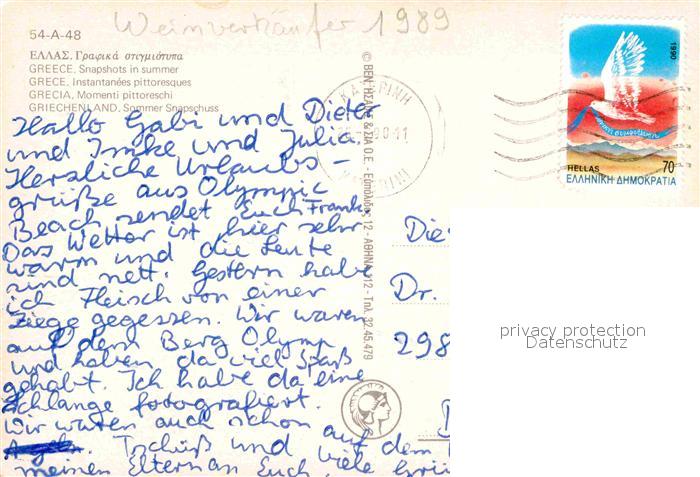 Weinverkäufer 1989
54-A-48
ΕΛΛΑΣ. Γραφικά στιγμιότυπα
GREECE. Snapshots in summer
GRECE. Instantanées pittoresques
GRECIA. Momenti pittoreschi
GRIECHENLAND. Sommer Snapschuss
Hallo Gabi und Dieter
und Imke und Julia.
Herzliche Urlaubs-
grüße aus Olympic
Beach sendet Euch Frank.
Das Wetter ist hier sehr
warm und die Leute
sind nett. Gestern habe
ich Fleisch von einer
Ziege gegessen. Wir waren
auf dem Berg Olymp
und haben da viel Spaß
gehabt. Ich habe da eine
Schlange fotografiert.
Wir waren auch schon auf dem
Tschüß und viele Grü
meinen Eltern an Euch,
ΑΘΗΝΑ 112 - Τηλ. 32.45.479
ΚΑΤΕΡΙΝΗ
1990
HELLAS 70
ΕΛΛΗΝΙΚΗ ΔΗΜΟΚΡΑΤΙΑ
Die
Dr.
298
privacy protection
Datenschutz